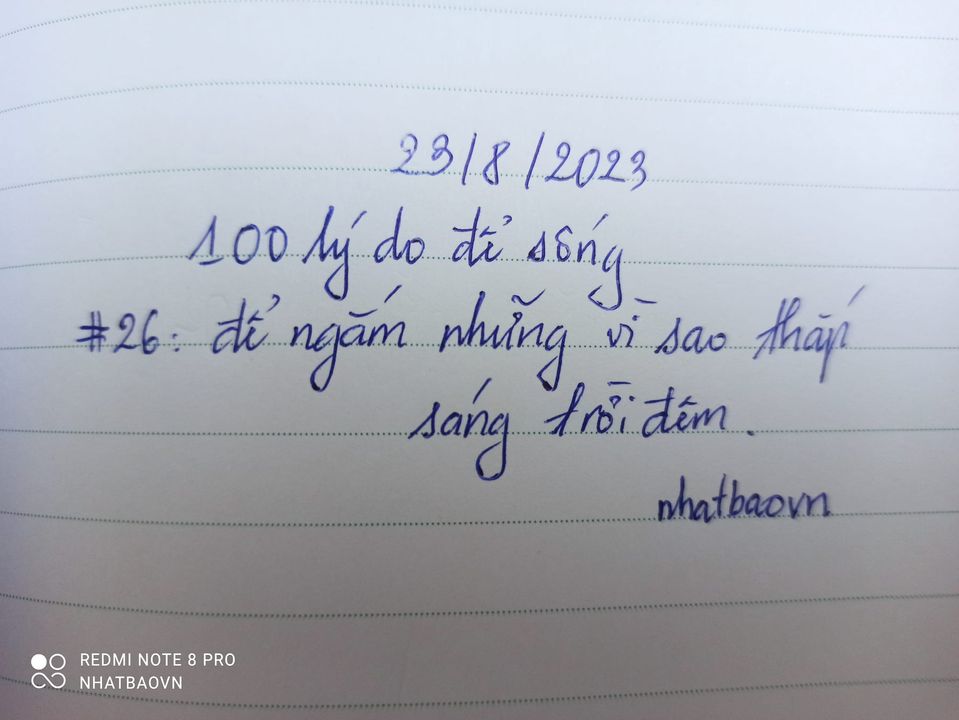 23/8/2023
100 lý do để sống
#26: để ngắm những vì sao thắp
sáng trời đêm.
nhatbaovn
REDMI NOTE 8 PRO
NHATBAOVN